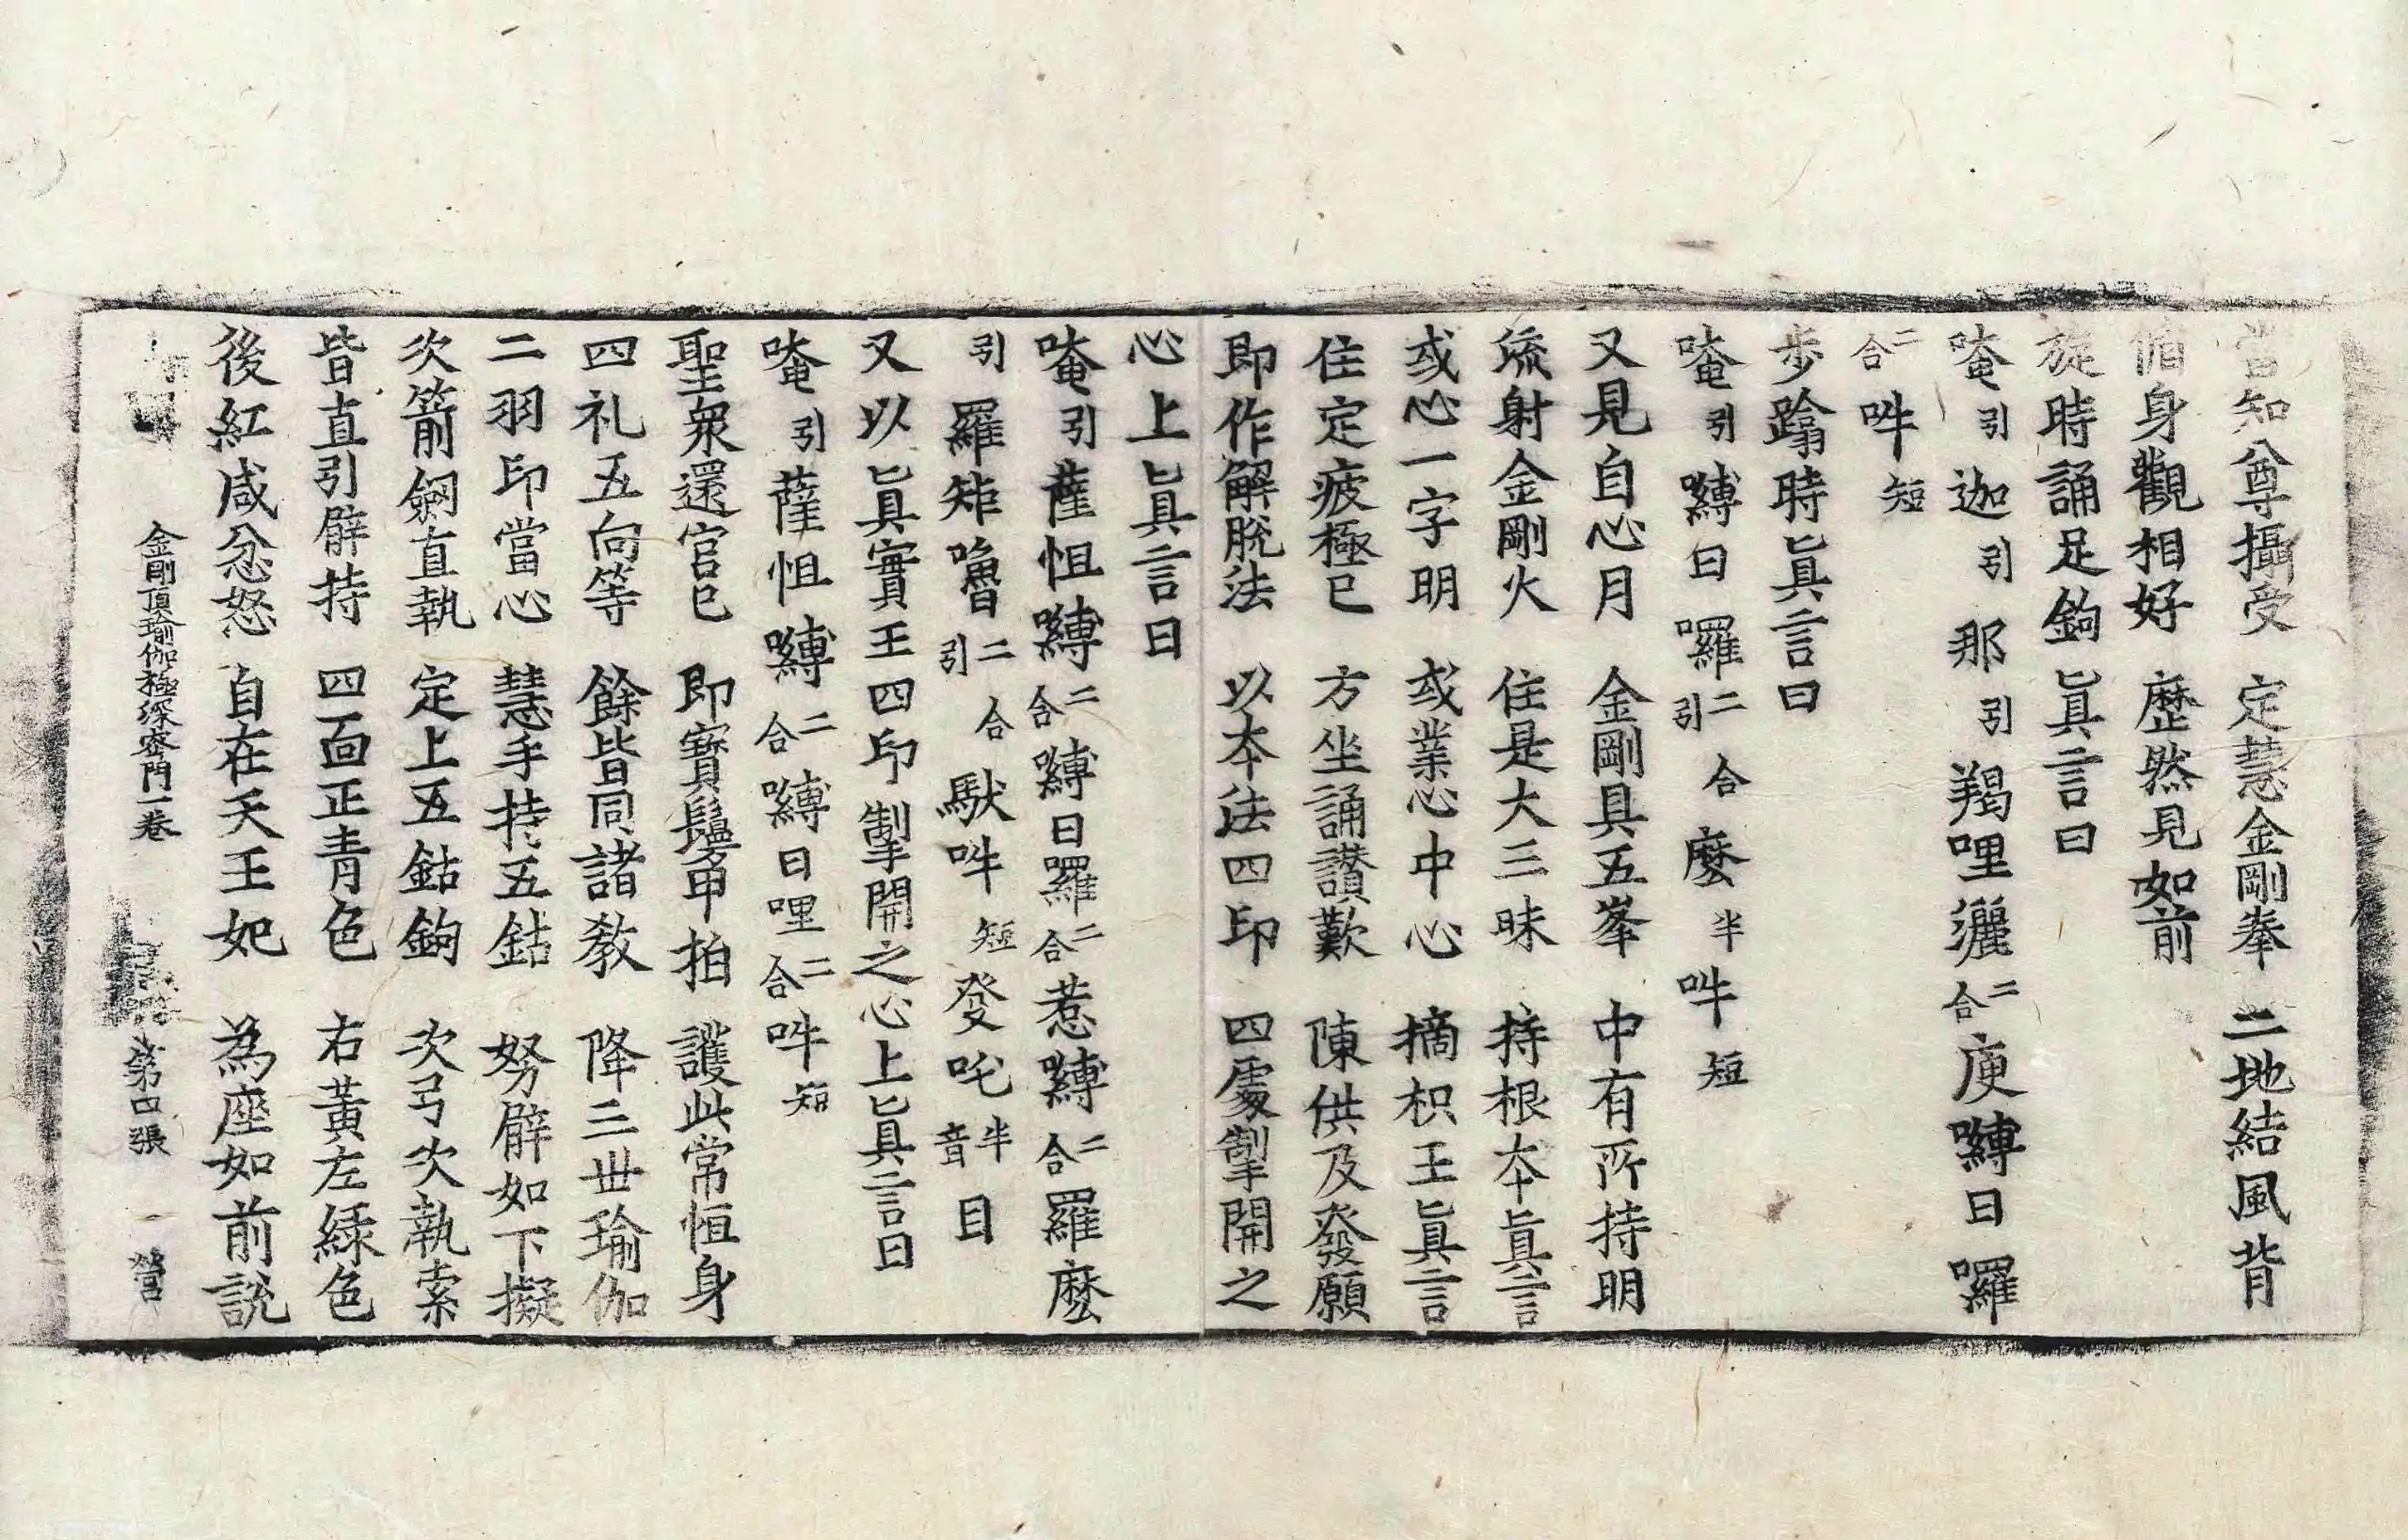 當知尊攝受　定慧金剛拳　二地結風背
脩身觀相好　歷然見如前
旋時誦足鉤真言曰
唵引迦引那引羯哩灑二合庾嚩日囉
二合吽短
步蹹時真言曰
唵引嚩日囉二合引麼半吽短
又見自心月　金剛具五峯　中有所持明
流射金剛火　住是大三昧　持根本真言
或心一字明　或業心中心　摘枳王真言
住定疲極已　方坐誦讃歎　陳供及發願
即作解脫法　以本法四印　四處掣開之
心上真言曰
唵引薩怛嚩二合嚩日羅二合惹嚩二合羅麼
引羅矩嚕二合引馱吽短發吒半音目
又以真實王四印掣開之心上真言曰
唵引薩怛嚩二合嚩日哩二合吽短
聖衆還宮已　即寶鬘甲拍　護此常恒身
四礼五向等　餘皆同諸教　降三世瑜伽
二羽印當心　慧手持五鈷　努臂如下擬
次箭劒直執　定上五鈷鉤　次弓次執索
皆直引臂持　四面正青色　右黃左緑色
後紅咸忿怒　自在天王妃　為座如前說
金剛頂瑜伽極深密門一卷　第四張　營